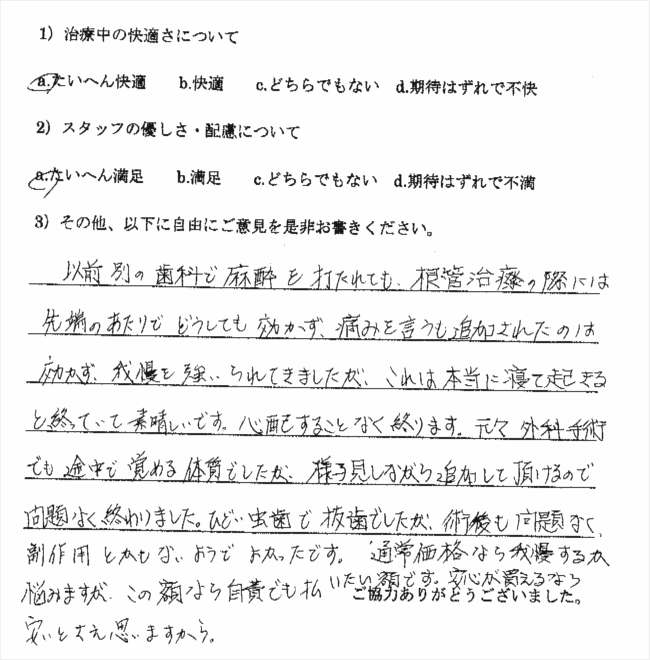 1）治療中の快適さについて
a.たいへん快適 b.快適 c.どちらでもない d.期待はずれで不快
2）スタッフの優しさ・配慮について
a.たいへん満足 b.満足 c.どちらでもない d.期待はずれで不満
3）その他、以下に自由にご意見を是非お書きください。
以前別の歯科で麻酔を打たれても、根管治療の際には
先端のあたりでどうしても効かず、痛みを言うも追加されたのは
効かず、我慢を強いられてきましたが、これは本当に寝て起きる
と終っていて素晴しいです。心配することなく終ります。元々外科手術
でも途中で覚める体質でしたが、様子見しながら追加して頂けるので
問題なく終わりました。ひどい虫歯で抜歯でしたが、術後も問題なく、
副作用とかもないようでよかったです。通常価格なら我慢するか
悩みますが、この額なら自費でも払いたい額です。安心が買えるなら
ご協力ありがとうございました。
安いとさえ思いますから。